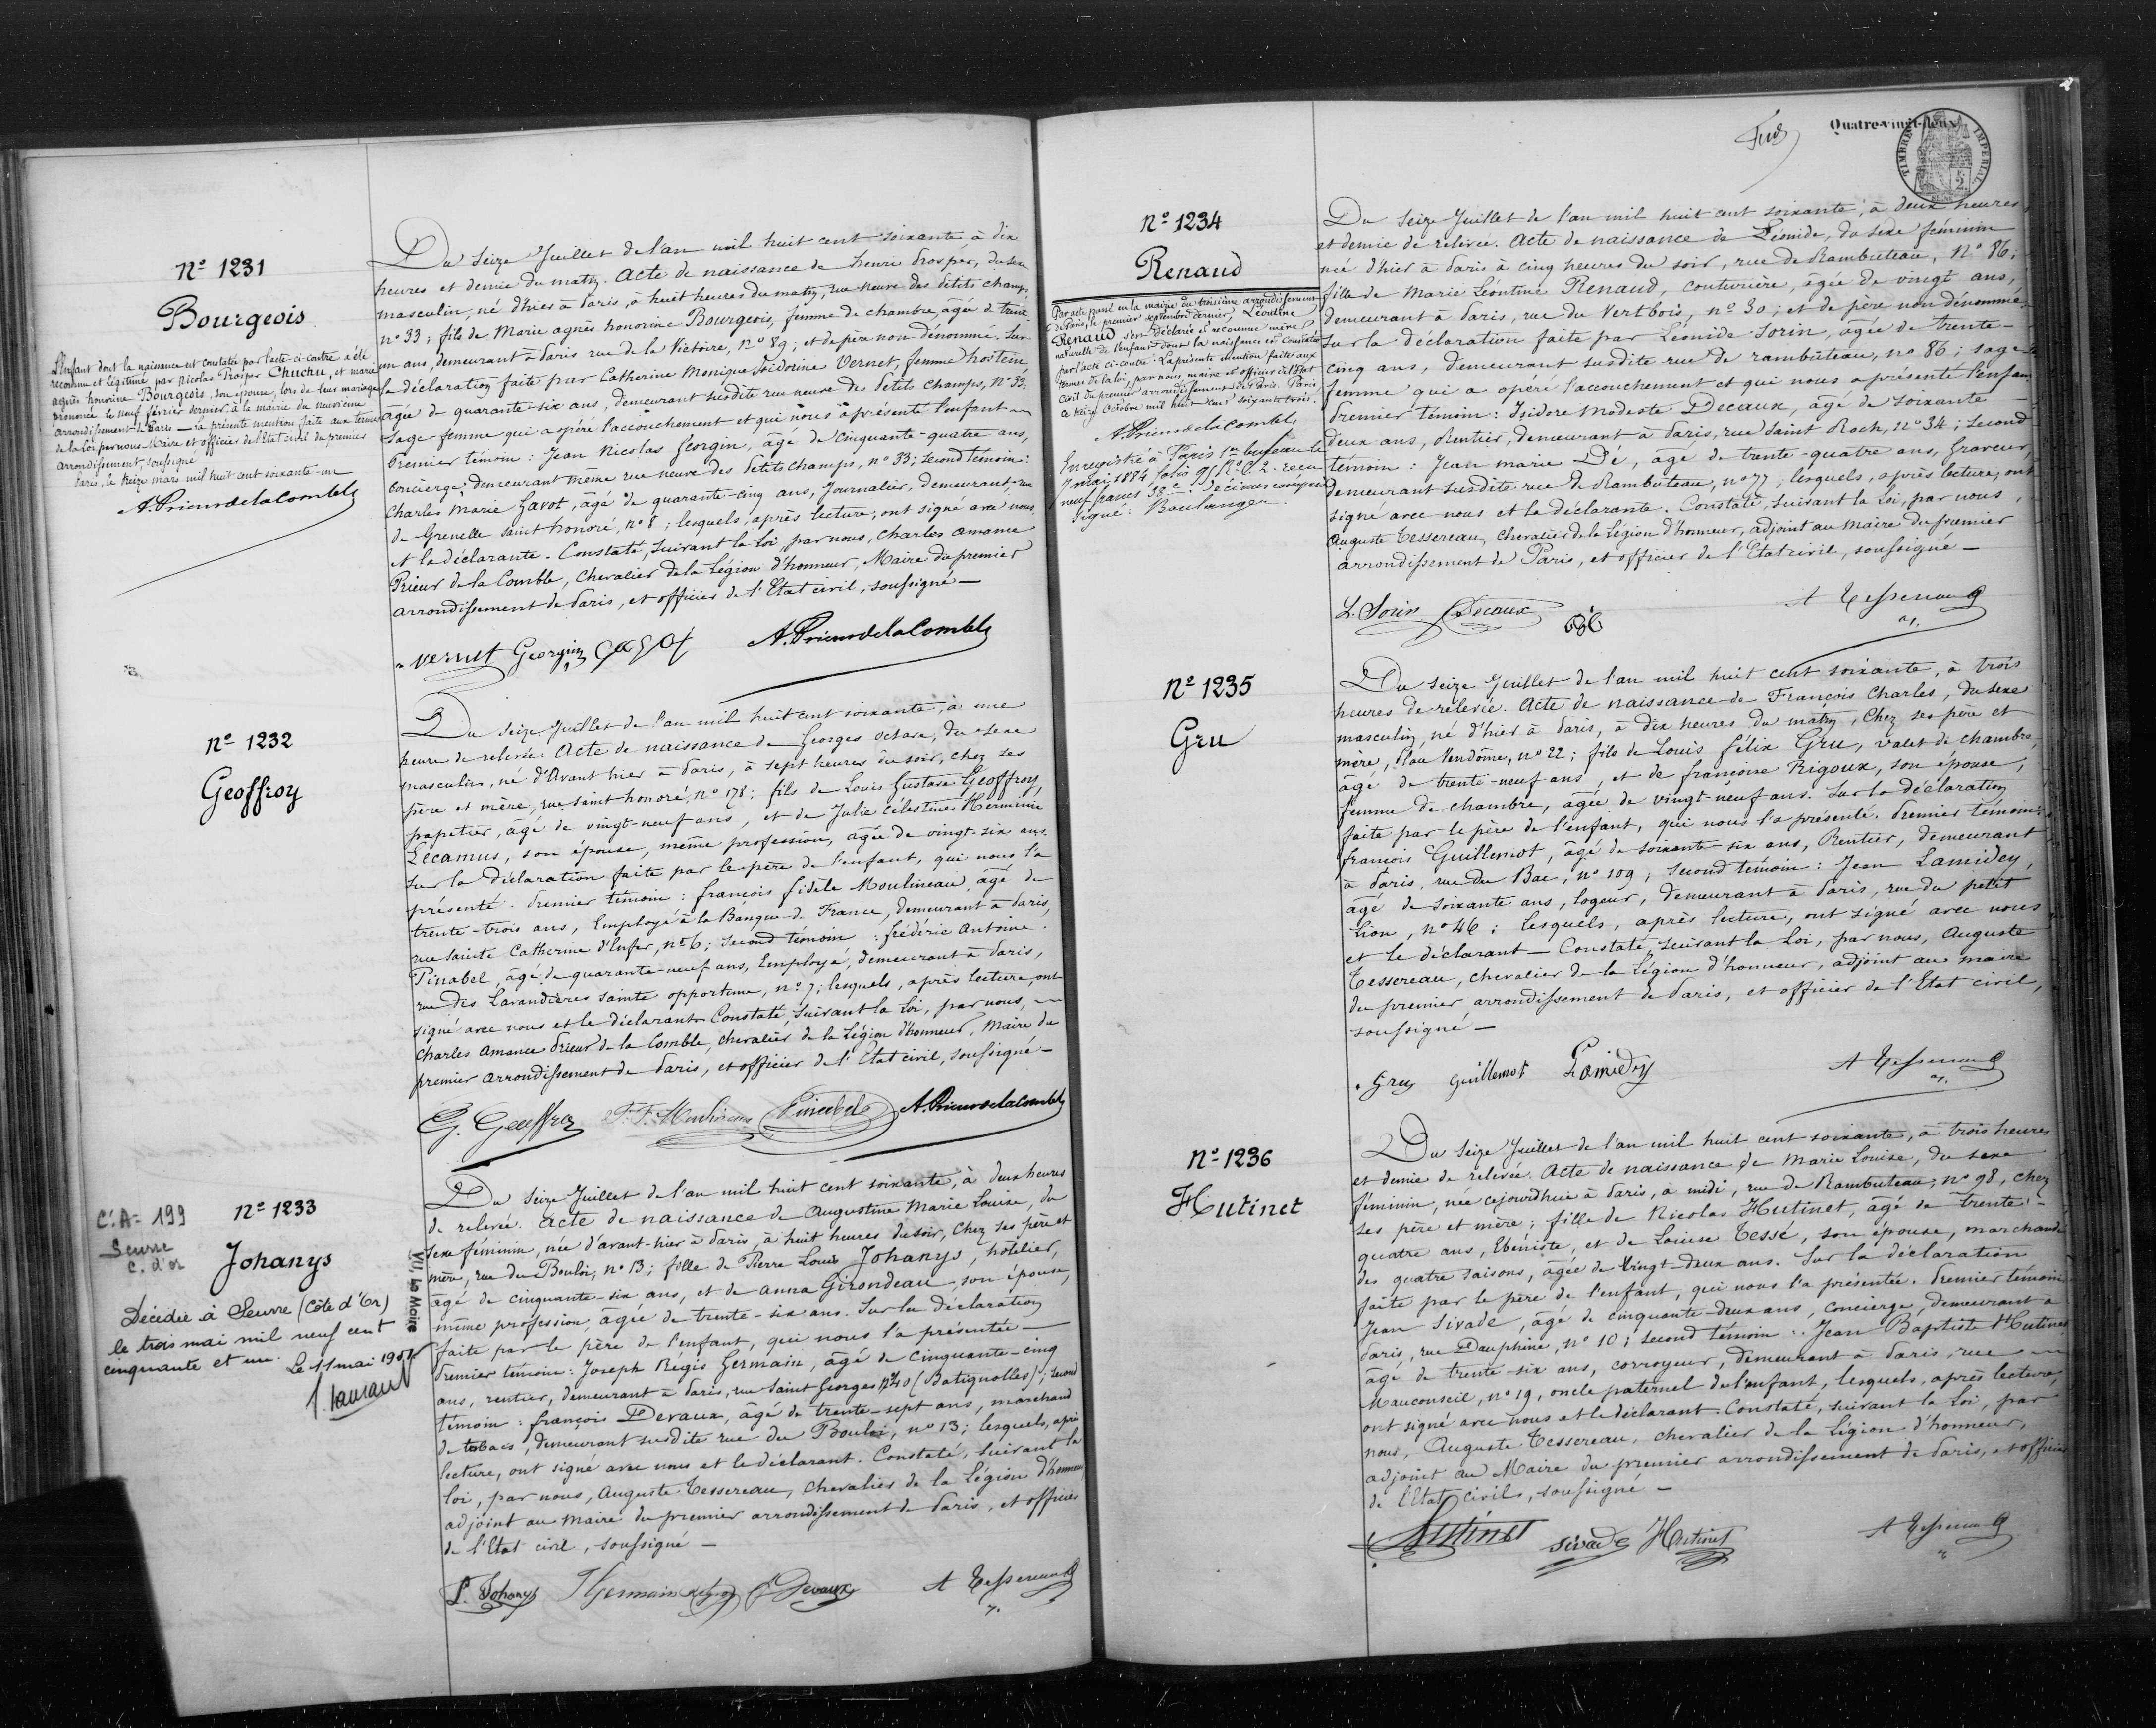 Nº 1231
Bourgeois
L'Enfant dont la naissance est constatée par l'acte ci-contre a été
reconnu et légitimé par Nicolas Prosper Chuchu, et marie
agnès honorine Bourgeois, son épouse, lors de leur mariage
prononcé le neuf février dernier, à la mairie du neuvième
arrondissement de Paris — La présente mention faite aux termes
de la Loi par nous Maire et officier de l'Etat civil du premier
arrondissement, soussigné
Paris, le treize mars mil huit cent soixante-un
A. Prieur de la Comble
Du Seize Juillet de l'an mil huit cent soixante, à dix
heures et demie du matin. Acte de naissance de henri Prosper, du sexe
masculin, né d'hier à Paris, à huit heures du matin, rue neuve des Petits champs,
nº 33; fils de Marie agnès honorine Bourgeois, femme de chambre, âgée de trente
un ans, demeurant à Paris rue de la Victoire, nº 89; et de père non dénommé. Sur
la déclaration faite par Catherine Monique Isidorine Vernet, femme hostein,
âgée de quarante six ans, demeurant susdite rue neuve des Petits champs, nº 33.
Sage femme qui a opéré l'accouchement et qui nous a présenté l'enfant
Premier témoin: Jean Nicolas Georgin, âgé de cinquante-quatre ans,
Concierge, demeurant même rue neuve des Petits champs, nº 33; Second témoin:
Charles Marie Gavot, âgé de quarante-cinq ans, Journalier, demeurant, rue
de Grenelle Saint honoré, nº 8; lesquels, après lecture, ont signé avec nous
et la déclarante. Constaté, suivant la Loi, par nous, Charles amance
Prieur de la Comble, Chevalier de la Légion d'honneur, Maire du premier
arrondissement de Paris, et officier de l'Etat civil, soussigné —
Vernet Georgin Gavot A. Prieur de la Comble
Nº 1232
Geoffroy
Du Seize Juillet de l'an mil huit cent soixante, à une
heure de relevée. Acte de naissance de Georges octave, du sexe
masculin, né d'Avant hier à Paris, à sept heures du soir, chez ses
père et mère, rue Saint honoré, nº 178; fils de Louis Gustave Geoffroy,
papetier, âgé de vingt-neuf ans, et de Julie Célestine Herminie
Lecamus, son épouse, même profession, âgée de vingt-six ans.
Sur la Déclaration faite par le père de l'enfant, qui nous l'a
présenté. Premier témoin: françois fidèle Moulineau, âgé de
trente-trois ans, Employé à la Banque de France, demeurant à Paris,
rue Sainte Catherine d'Enfer, nº 6; second témoin: frédéric Antoine
Pinabel, âgé de quarante-neuf ans, Employé, demeurant à Paris,
rue des Lavandières Sainte opportune, nº 7; lesquels, après lecture, ont
signé avec nous et le déclarant. Constaté, suivant la Loi, par nous,
Charles Amance Prieur de la Comble, chevalier de la Légion d'honneur, Maire du
premier arrondissement de Paris, et officier de l'Etat civil, soussigné —
G. Geoffroy F. F. Moulineau Pinabel A. Prieur de la Comble
C.A= 199
Seurre
C. d'or
Nº 1233
Johanys
Décédée à Seurre (Côte d'Or)
le trois mai mil neuf cent
cinquante et un.
Le 11 mai 1951
VU, Le Maire
Du Seize Juillet de l'an mil huit cent soixante, à deux heures
de relevée. Acte de naissance de Augustine Marie Louise, du
sexe féminin, née d'avant-hier à Paris, à huit heures du soir, chez ses père et
mère, rue du Bouloi, nº 13; fille de Pierre Louis Johanys, hôtelier,
âgé de cinquante-six ans, et de anna Girondeau, son épouse,
même profession, âgée de trente-six ans. Sur la déclaration
faite par le père de l'enfant, qui nous l'a présentée —
Premier témoin: Joseph Régis Germain, âgé de cinquante-cinq
ans, rentier, demeurant à Paris, rue Saint Georges nº 40 (Batignolles); second
témoin: françois Devaux, âgé de trente-sept ans, marchand
de tabacs, demeurant susdite rue du Bouloi, nº 13; lesquels, après
lecture, ont signé avec nous et le déclarant. Constaté, suivant la
loi, par nous, Auguste Tessereau, chevalier de la Légion d'honneur
adjoint au Maire du premier arrondissement de Paris, et officier
de l'Etat civil, soussigné —
P. Johanys Germain Devaux A Tessereau
Quatre-vingt-deux
TIMBRE IMPERIAL
Nº 1234
Renaud
Par acte passé en la mairie du troisième arrondissement
de Paris, le premier septembre dernier, Léontine
Renaud s'en déclarée et reconnue mère
naturelle de l'enfant dont la naissance est constatée
par l'acte ci-contre. La présente mention faite aux
termes de la loi, par nous maire et officier de l'Etat
Civil du premier arrondissement de Paris. Paris,
ce treize octobre mil huit cent soixante trois.
A. Prieur de la Comble
Enregistré à Paris 1er bureau le
7 mai 1884 folio 95 Rº C. 2. reçu
neuf francs 38 c. décimes compris
Signé: Boulanger
Du Seize Juillet de l'an mil huit cent soixante, à deux heures
et demie de relevée. Acte de naissance de Léonide, du sexe féminin
née d'hier à Paris à cinq heures du soir, rue de Rambuteau, Nº 86;
fille de Marie Léontine Renaud, couturière, âgée de vingt ans,
demeurant à Paris, rue du Vertbois, nº 30; et de père non dénommé
Sur la déclaration faite par Léonide Sorin, âgée de trente-
cinq ans, demeurant susdite rue de rambuteau, nº 86; sage
femme qui a opéré l'accouchement et qui nous a présenté l'enfant
Premier témoin: Isidore Modeste Decaux, âgé de soixante-
deux ans, Rentier, demeurant à Paris, rue Saint Roch, nº 34; second
témoin: Jean marie Dé, âgé de trente-quatre ans, Graveur,
demeurant susdite rue de Rambuteau, nº 77; lesquels, après lecture, ont
signé avec nous et la déclarante. Constaté, suivant la Loi, par nous,
Auguste Tessereau, Chevalier de la Légion d'honneur, adjoint au maire du premier
arrondissement de Paris, et officier de l'Etat civil, soussigné —
L. Sorin Decaux Dé A Tessereau
Nº 1235
Gru
Du Seize Juillet de l'an mil huit cent soixante, à trois
heures de relevée. Acte de naissance de François Charles, du sexe
masculin, né d'hier à Paris, à dix heures du matin, chez ses père et
mère, Place Vendôme, nº 22; fils de Louis félix Gru, valet de chambre,
âgé de trente-neuf ans, et de françoise Rigoux, son épouse,
femme de chambre, âgée de vingt-neuf ans. Sur la déclaration
faite par le père de l'enfant, qui nous l'a présenté. Premier témoin:
françois Guillemot, âgé de soixante six ans, Rentier, demeurant
à Paris, rue du Bac, nº 109; second témoin: Jean Lamidey,
âgé de soixante ans, logeur, demeurant à Paris, rue du petit
Lion, nº 46; lesquels, après lecture, ont signé avec nous
et le déclarant — Constaté, suivant la Loi, par nous, Auguste
Tessereau, chevalier de la Légion d'honneur, adjoint au maire
du premier arrondissement de Paris, et officier de l'Etat civil,
soussigné —
Gru Guillemot Lamidey A Tessereau
Nº 1236
Hutinet
Du Seize Juillet de l'an mil huit cent soixante, à trois heures
et demie de relevée. Acte de naissance de Marie Louise, du sexe
féminin, née cejourdhui à Paris, à midi, rue de Rambuteau, nº 98, chez
ses père et mère; fille de Nicolas Hutinet, âgé de trente-
quatre ans, Ebéniste, et de Louise Tessé, son épouse, marchande
des quatre saisons, âgée de vingt-deux ans. Sur la déclaration
faite par le père de l'enfant, qui nous l'a présentée. Premier témoin
Jean Sivade, âgé de cinquante-deux ans, concierge, demeurant à
Paris, rue Dauphine, nº 10; second témoin: Jean Baptiste Hutinet
âgé de trente-six ans, corroyeur, demeurant à Paris, rue
Mauconseil, nº 19, oncle paternel de l'enfant, lesquels, après lecture,
ont signé avec nous et le déclarant. Constaté, suivant la Loi, par
nous, Auguste Tessereau, chevalier de la Légion d'honneur,
adjoint au Maire du premier arrondissement de Paris, et officier
de l'Etat civil, soussigné —
Hutinet Sivade Hutinet A Tessereau